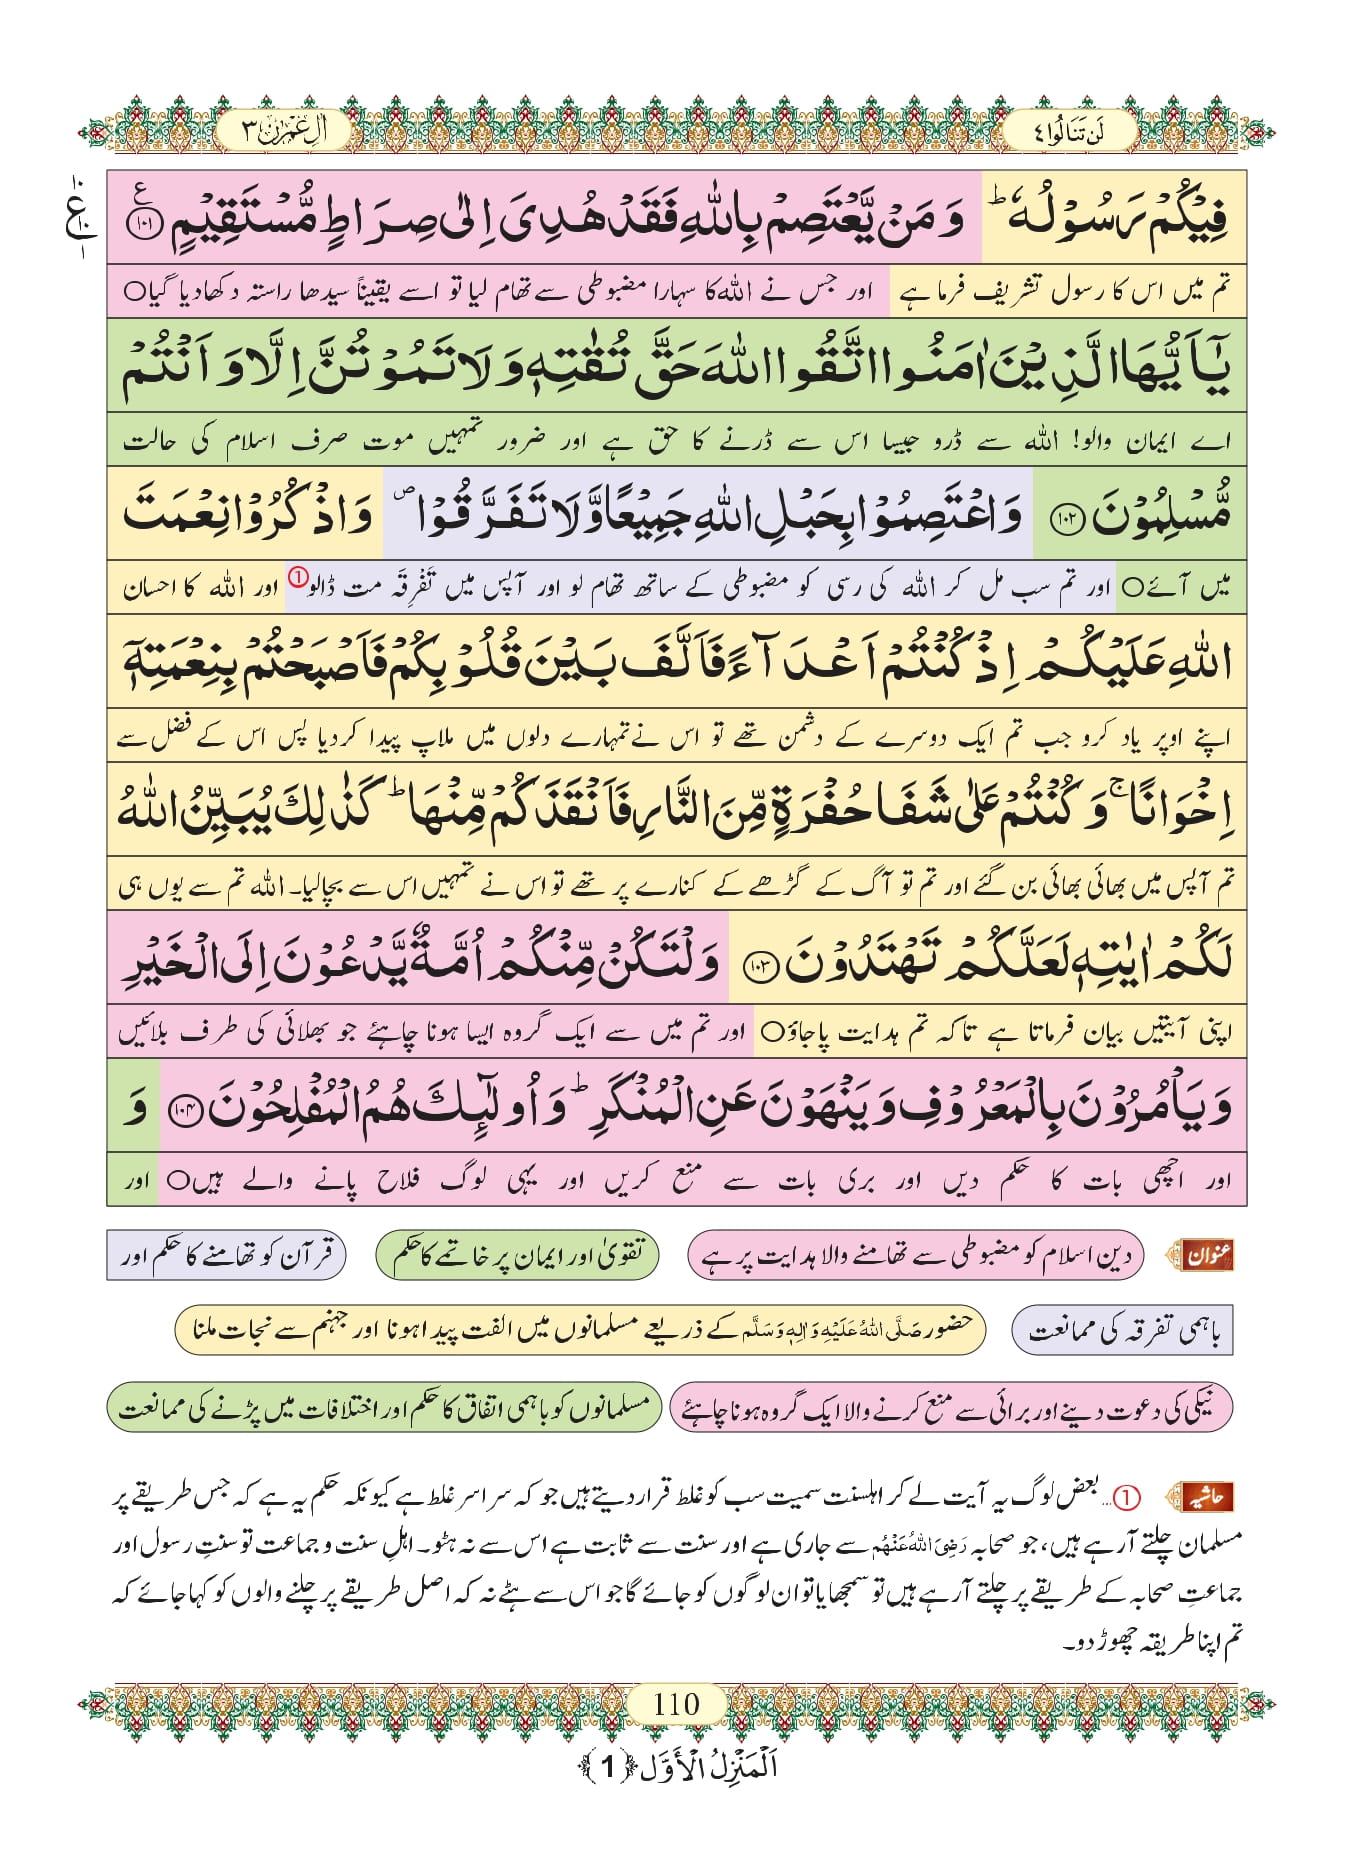 لَنْ تَنَالُوا ٤
اٰلِ عِمْرٰن ٣
فِیْكُمْ رَسُوْلُهٗؕ وَ مَنْ یَّعْتَصِمْ بِاللّٰهِ فَقَدْ هُدِیَ اِلٰى صِرَاطٍ مُّسْتَقِیْمٍ۠ ﴿۱۰۱﴾ ع
تم میں اس کا رسول تشریف فرما ہے اور جس نے اللہ کا سہارا مضبوطی سے تھام لیا تو اسے یقیناً سیدھا راستہ دکھادیا گیا○
یٰۤاَیُّهَا الَّذِیْنَ اٰمَنُوا اتَّقُوا اللّٰهَ حَقَّ تُقٰتِهٖ وَ لَا تَمُوْتُنَّ اِلَّا وَ اَنْتُمْ
اے ایمان والو! اللہ سے ڈرو جیسا اس سے ڈرنے کا حق ہے اور ضرور تمہیں موت صرف اسلام کی حالت
مُّسْلِمُوْنَ ﴿۱۰۲﴾ وَ اعْتَصِمُوْا بِحَبْلِ اللّٰهِ جَمِیْعًا وَّ لَا تَفَرَّقُوْا۪ وَ اذْكُرُوْا نِعْمَتَ
میں آئے○ اور تم سب مل کر اللہ کی رسی کو مضبوطی کے ساتھ تھام لو اور آپس میں تَفْرِقَہ مت ڈالو① اور اللہ کا احسان
اللّٰهِ عَلَیْكُمْ اِذْ كُنْتُمْ اَعْدَآءً فَاَلَّفَ بَیْنَ قُلُوْبِكُمْ فَاَصْبَحْتُمْ بِنِعْمَتِهٖۤ
اپنے اوپر یاد کرو جب تم ایک دوسرے کے دشمن تھے تو اس نے تمہارے دلوں میں ملاپ پیدا کردیا پس اس کے فضل سے
اِخْوَانًاۚ وَ كُنْتُمْ عَلٰى شَفَا حُفْرَةٍ مِّنَ النَّارِ فَاَنْقَذَكُمْ مِّنْهَاؕ كَذٰلِكَ یُبَیِّنُ اللّٰهُ
تم آپس میں بھائی بھائی بن گئے اور تم تو آگ کے گڑھے کے کنارے پر تھے تو اس نے تمہیں اس سے بچالیا۔ اللہ تم سے یوں ہی
لَكُمْ اٰیٰتِهٖ لَعَلَّكُمْ تَهْتَدُوْنَ ﴿۱۰۳﴾ وَ لْتَكُنْ مِّنْكُمْ اُمَّةٌ یَّدْعُوْنَ اِلَى الْخَیْرِ
اپنی آیتیں بیان فرماتا ہے تاکہ تم ہدایت پاجاؤ○ اور تم میں سے ایک گروہ ایسا ہونا چاہئے جو بھلائی کی طرف بلائیں
وَ یَاْمُرُوْنَ بِالْمَعْرُوْفِ وَ یَنْهَوْنَ عَنِ الْمُنْكَرِؕ وَ اُولٰٓىِٕكَ هُمُ الْمُفْلِحُوْنَ ﴿۱۰۴﴾ وَ
اور اچھی بات کا حکم دیں اور بری بات سے منع کریں اور یہی لوگ فلاح پانے والے ہیں○ اور
عنوان دین اسلام کو مضبوطی سے تھامنے والا ہدایت پر ہے تقویٰ اور ایمان پر خاتمے کا حکم قرآن کو تھامنے کا حکم اور
باہمی تفرقہ کی ممانعت حضور صَلَّى اللّٰهُ عَلَیْهِ وَاٰلِهٖ وَسَلَّم کے ذریعے مسلمانوں میں الفت پیدا ہونا اور جہنم سے نجات ملنا
نیکی کی دعوت دینے اور برائی سے منع کرنے والا ایک گروہ ہونا چاہئے مسلمانوں کو باہمی اتفاق کا حکم اور اختلافات میں پڑنے کی ممانعت
حاشیہ ①... بعض لوگ یہ آیت لے کر اہلسنت سمیت سب کو غلط قرار دیتے ہیں جو کہ سراسر غلط ہے کیونکہ حکم یہ ہے کہ جس طریقے پر
مسلمان چلتے آرہے ہیں، جو صحابہ رَضِیَ اللّٰهُ عَنْهُم سے جاری ہے اور سنت سے ثابت ہے اس سے نہ ہٹو۔ اہلِ سنت و جماعت تو سنتِ رسول اور
جماعتِ صحابہ کے طریقے پر چلتے آرہے ہیں تو سمجھایا تو ان لوگوں کو جائے گا جو اس سے ہٹے نہ کہ اصل طریقے پر چلنے والوں کو کہا جائے کہ
تم اپنا طریقہ چھوڑ دو۔
110
اَلْمَنْزِلُ الْاَوَّل ﴿1﴾